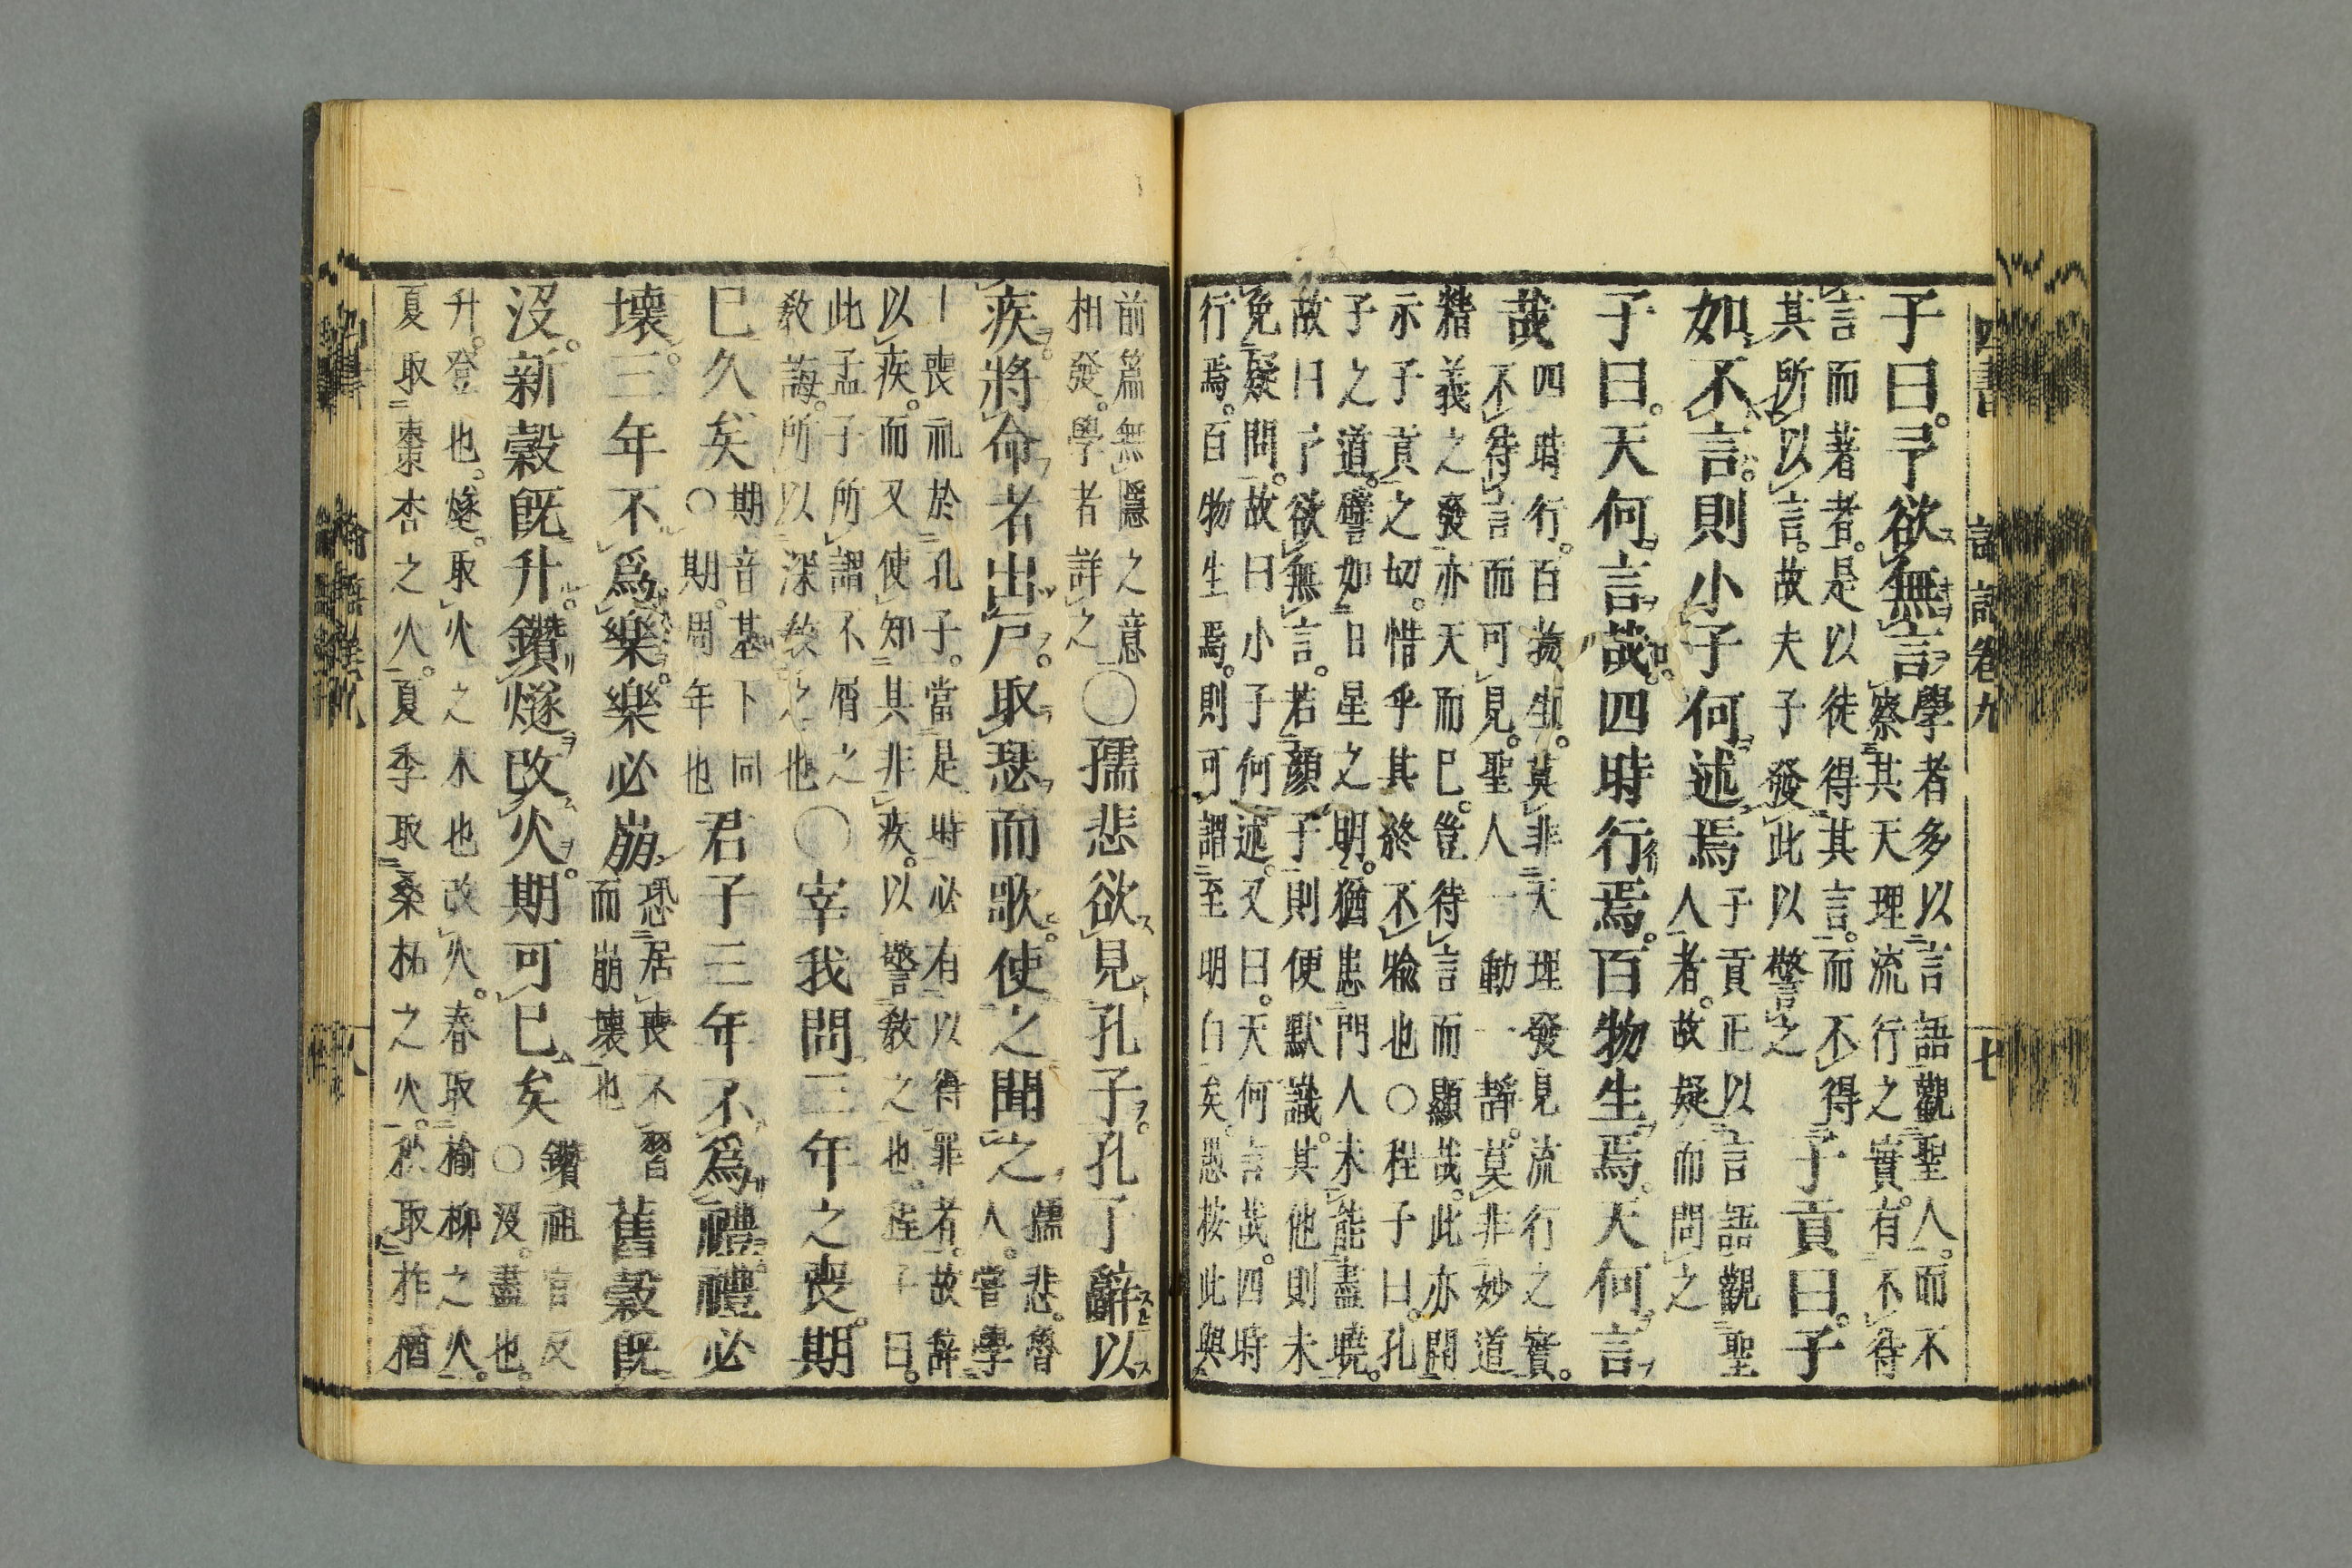 子曰。予欲無言學者多以言語觀聖人。而不
察其天理流行之實。有不待
言而著者。是以徒得其言。而不得
其所以言。故夫子發此以警之
子貢曰。子
如不言。則小子何述焉
子貢正以言語觀聖
人者。故疑而問之
子曰。天何言哉。四時行焉。百物生焉。天何言
哉
四時行。百物生。莫非天理發見流行之實。
不待言而可見。聖人一動一靜。莫非妙道
精義之發。亦天而已。豈待言而顯哉。此亦開
示子貢之切。惜乎其終不喩也○程子曰。孔
子之道。譬如日星之明。猶患門人未能盡曉。
故曰予欲無言。若顏子則便默識。其他則未
免疑問。故曰小子何述。又曰。天何言哉。四時
行焉。百物生焉。則可謂至明白矣。愚按此與
前篇無隱之意
相發。學者詳之
○孺悲欲見孔子。孔子辭以
疾。將命者出戸。取瑟而歌。使之聞之
孺悲。魯
人。嘗學
士喪礼於孔子。當是時必有以得罪者。故辞
以疾。而又使知其非疾。以警教之也。程子曰。
此孟子所謂不屑之
教誨。所以深教之也
○宰我問三年之喪。期
已久矣
期音基下同
○期。周年也
君子三年不爲禮。禮必
壞。三年不爲樂。樂必崩
恐居喪不習
而崩壞也
舊穀既
沒。新穀既升。鑽燧改火。期可已矣
鑽祖官反
○沒。盡也。
升。登也。燧。取火之木也改火。春取楡柳之火。
夏取棗杏之火。夏季取桑柘之火。秋取柞楢
四書
論語卷九
十七